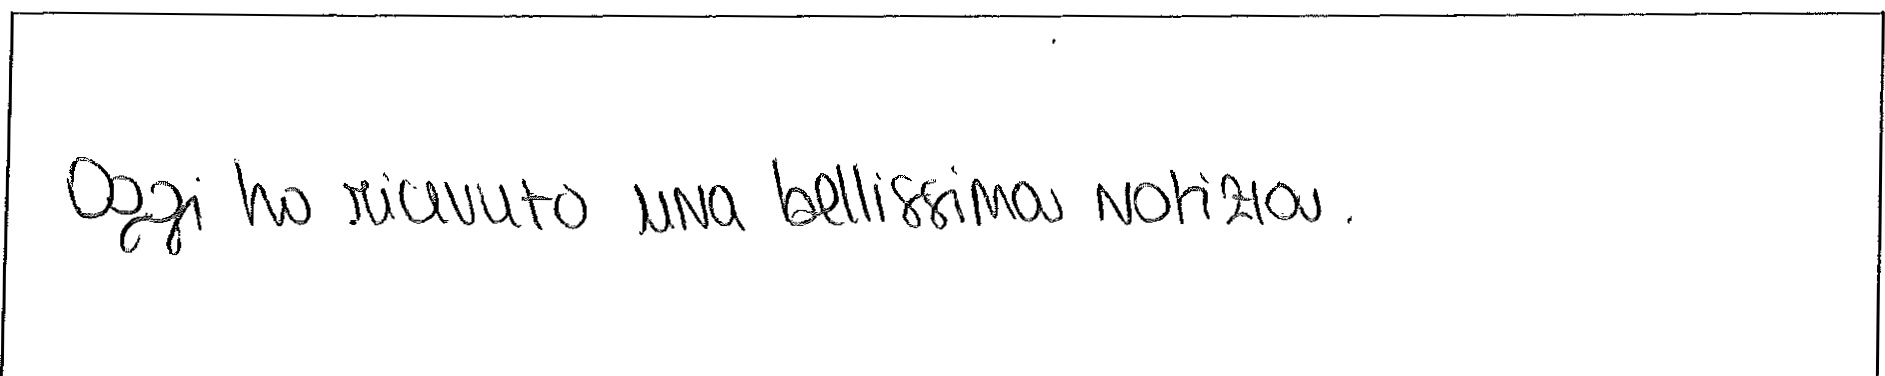 Oggi ho ricevuto una bellissima notizia.